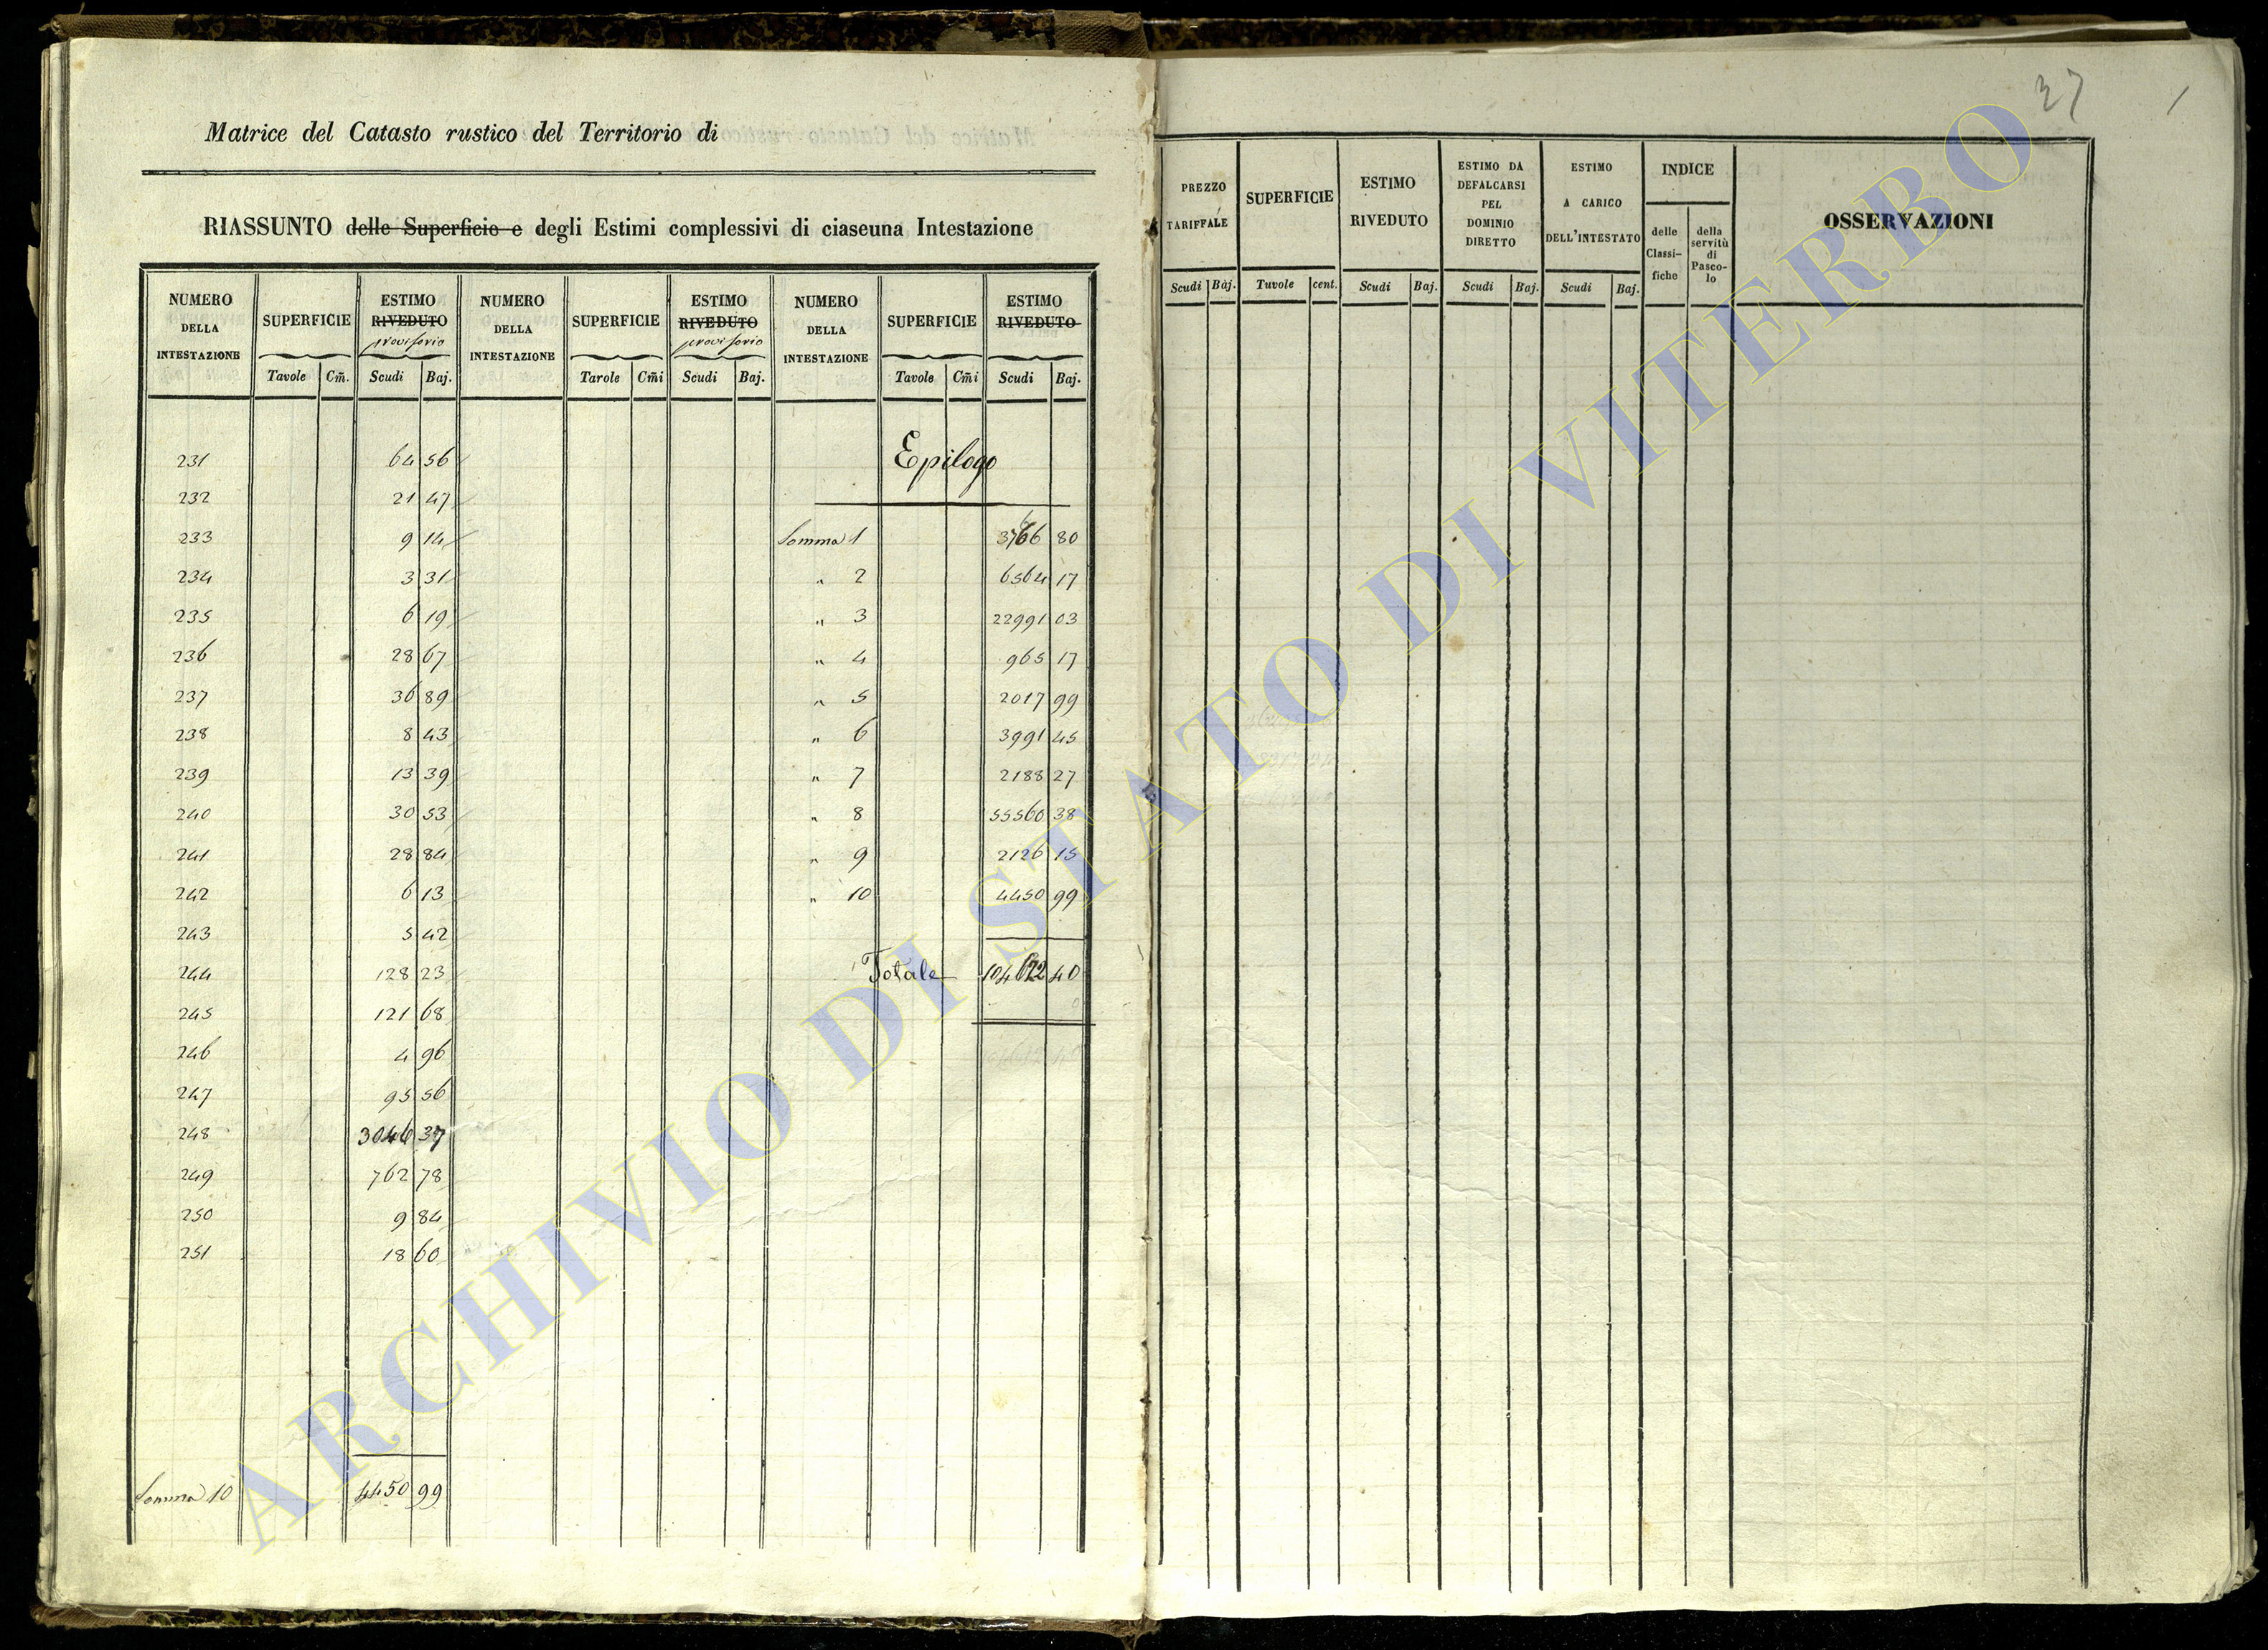 Matrice del Catasto rustico del Territorio di
RIASSUNTO delle Superficie e degli Estimi complessivi di ciaseuna Intestazione
NUMERO DELLA INTESTAZIONE | SUPERFICIE | ESTIMO RIVEDUTO provisorio | NUMERO DELLA INTESTAZIONE | SUPERFICIE | ESTIMO RIVEDUTO provisorio | NUMERO DELLA INTESTAZIONE | SUPERFICIE | ESTIMO RIVEDUTO
Tavole Cm̃. Scudi Baj. Tarole Cm̃i Scudi Baj. Tavole Cm̃i Scudi Baj.
231 64 56
232 21 47
233 9 14
234 3 31
235 6 19
236 28 67
237 36 89
238 8 43
239 13 39
240 30 53
241 28 84
242 6 13
243 5 42
244 128 23
245 121 68
246 4 96
247 95 56
248 3046 37
249 762 78
250 9 84
251 18 60
Somma 10 4450 99
Epilogo
Somma 1 3766 80
" 2 6564 17
" 3 22991 03
" 4 965 17
" 5 2017 99
" 6 3991 45
" 7 2188 27
" 8 55560 38
" 9 2126 15
" 10 4450 99
Totale 104622 40
37
PREZZO TARIFFALE | SUPERFICIE | ESTIMO RIVEDUTO | ESTIMO DA DEFALCARSI PEL DOMINIO DIRETTO | ESTIMO A CARICO DELL'INTESTATO | INDICE | OSSERVAZIONI
delle Classifiche | della servitù di Pascolo
Scudi Baj. Tuvole cent. Scudi Baj. Scudi Baj. Scudi Baj.
ARCHIVIO DI STATO DI VITERBO